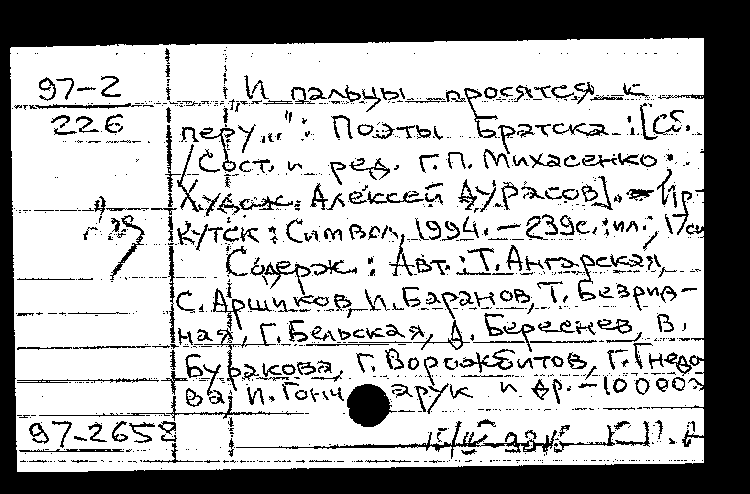 97-2
226
"И пальцы просятся к
перу...": Поэты Братска: [Сб.
/ Сост. и ред. Г.П. Михасенко;
Худож. Алексей Дурасов]. - Ир-
кутск: Символ, 1994. - 239с.: ил.; 17см
Содерж.: Авт.: Т. Ангарская,
С. Аршиков, И. Баранов, Т. Безрид-
ная, Г. Бельская, А. Береснев, В.
Буракова, Г. Ворожбитов, Г. Гнедо
ва, И. Гонч арук и др. - 10000э
97-2658